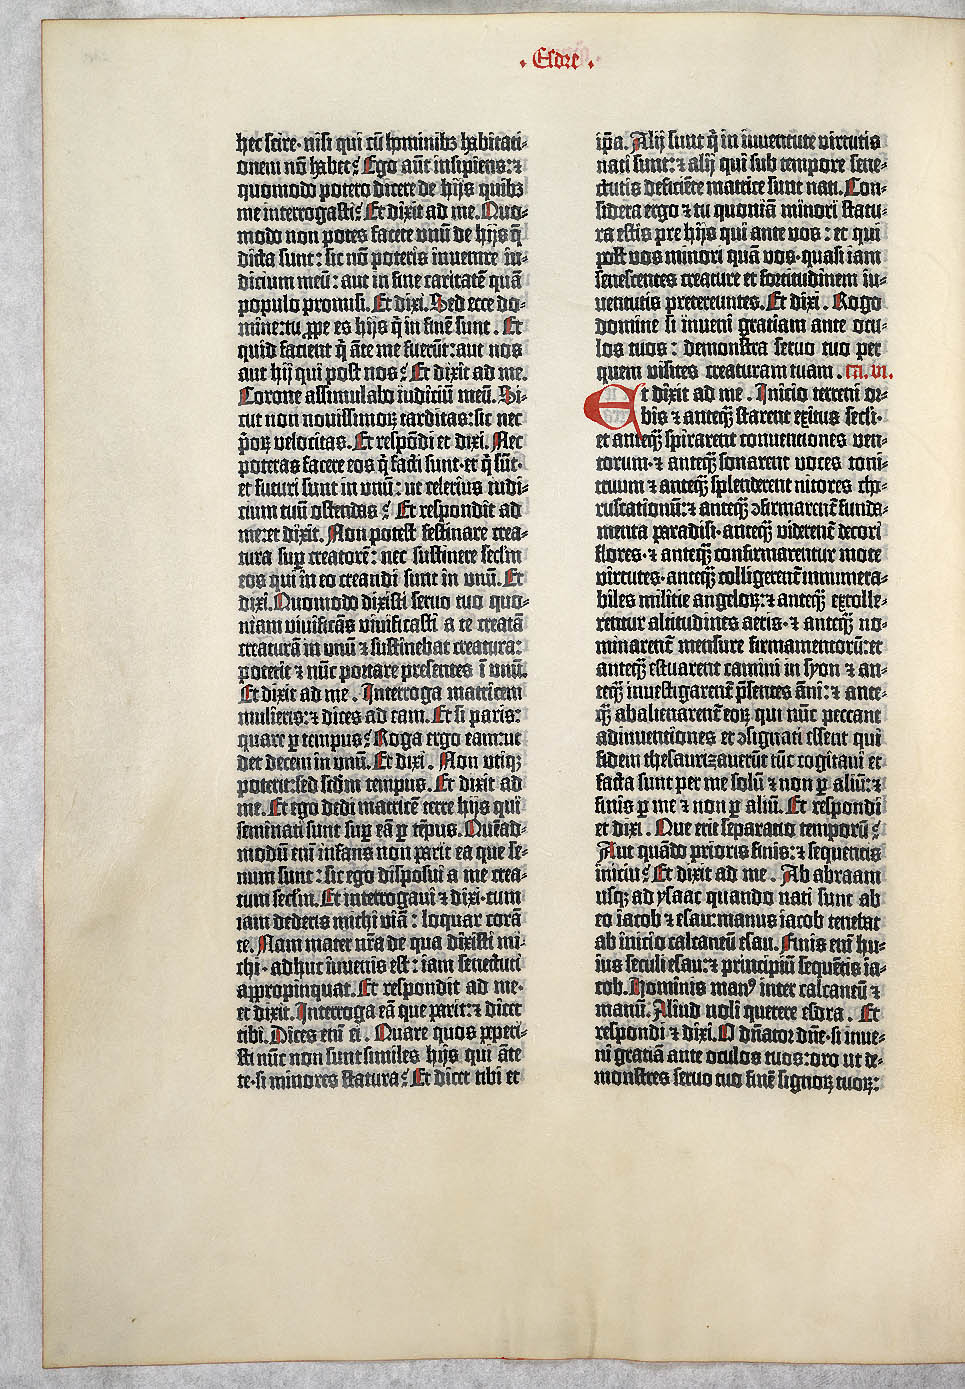 · Esdre ·
hec scire· nisi qui cū hominibꝫ habitati⸗
onem nō habet? Ego aūt insipiens: ⁊
quomodo potero dicere de hijs quibꝫ
me interrogasti? Et dixit ad me. Quo⸗
modo non potes facere vnū de hijs q̄
dicta sunt: sic nō poteris inuenire iu⸗
dicium meū: aut in fine caritatē quā
populo promisi. Et dixi. Sed ecce do⸗
mine: tu ꝓpe es hijs q̄ in finē sunt . Et
quid facient q̄ āte me fuerūt: aut nos
aut hij qui post nos? Et dixit ad me.
Corone assimulabo iudiciū meū. Si⸗
cut non nouissimoꝝ tarditas: sic nec
p̄oꝝ velocitas. Et respōdi et dixi. Nec
poteras facere eos q̄ facti sunt· et q̄ sūt·
et futuri sunt in vnū: ut celerius iudi⸗
cium tuū ostendas? Et respondit ad
me: et dixit. Non potest festinare crea⸗
tura suꝑ creatorē: nec sustinere seclm
eos qui in eo creandi sunt in vnū. Et
dixi. Quomodo dixisti seruo tuo quo⸗
niam viuificās viuificasti a te creatā
creaturā in vnū ⁊ sustinebat creatura:
poterit ⁊ nūc portare presentes ī vnū.
Et dixit ad me . Interroga matricem
mulieris: ⁊ dices ad eam. Et si paris:
quare ꝑ tempus? Roga ergo eam: ut
det decem in vnū. Et dixi . Non vtiqꝫ
poterit: sed scdm tempus. Et dixit ad
me. Et ego dedi matricē terre hijs qui
seminati sunt suꝑ eā ꝑ tēpus. Quēad⸗
modū eni infans non parit ea que se⸗
num sunt: sic ego disposui a me crea⸗
tum seclm. Et interrogaui ⁊ dixi· cum
iam dederis michi viā: loquar corā
te. Nam mater nr̄a de qua dixisti mi⸗
chi· adhuc iuuenis est: iam senectuti
appropinquat. Et respondit ad me·
et dixit. Interroga eā que parit: ⁊ dicet
tibi. Dices eni ei . Quare quos peperi⸗
sti nūc non sunt similes hijs qui āte
te· si minores statura? Et dicet tibi et
ip̄a. Alij sunt q̄ in iuuentute virtutis
nati sunt: ⁊ alij qui sub tempore sene⸗
ctutis deficiēte matrice sunt nati. Con⸗
sidera ergo ⁊ tu quoniā minori statu⸗
ra estis pre hijs qui ante vos: et qui
post vos minori quā vos· quasi iam
senescentes creature et fortitudinem iu⸗
uentutis pretereuntes. Et dixi . Rogo
domine si inueni gratiam ante ocu⸗
los tuos: demonstra seruo tuo per
quem visites creaturam tuam . ca. vi.
Et dixit ad me . Inicio terreni or⸗
bis ⁊ anteqꝫ starent exitus secli·
et anteqꝫ spirarent conuentiones ven⸗
torum· ⁊ anteqꝫ sonarent voces toni⸗
truum ⁊ anteqꝫ splenderent nitores cho⸗
ruscationū: ⁊ anteqꝫ ↄfirmarent̄ funda⸗
menta paradisi· anteqꝫ viderent̄ decori
flores· ⁊ anteqꝫ confirmarentur mote
virtutes· anteqꝫ colligerent̄ innumera⸗
biles militie angeloꝝ: ⁊ anteqꝫ extolle⸗
rentur altitudines aeris· ⁊ anteqꝫ no⸗
minarent̄ mensure firmamentorū: et
anteqꝫ estuarent camini in syon ⁊ an⸗
teqꝫ inuestigarent̄ p̄sentes āni: ⁊ ante⸗
qꝫ abalienarent̄ eoꝝ qui nūc peccant
adinuentiones et ↄsignati essent qui
fidem thesaurizauerūt tūc cogitaui et
facta sunt per me solū ⁊ non ꝑ aliū: ⁊
finis ꝑ me ⁊ non ꝑ aliū. Et respondi
et dixi . Que erit separatio temporū?
Aut quādo prioris finis: ⁊ sequentis
iniciū? Et dixit ad me . Ab abraam
usqꝫ ad ysaac quando nati sunt ab
eo iacob ⁊ esau: manus iacob tenebat
ab inicio calcaneū esau . Finis eni hu⸗
ius seculi esau: ⁊ principiū sequētis ia⸗
cob. Hominis manꝰ inter calcaneū ⁊
manū. Aliud noli querere esdra . Et
respondi ⁊ dixi. O dn̄ator dn̄e· si inue⸗
ni gratiā ante oculos tuos: oro ut de⸗
monstres seruo tuo finē signoꝝ tuoꝝ: